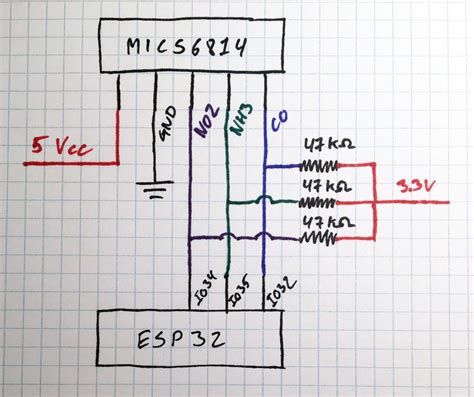 MICS6814
5 Vcc
GND
NO2
NH3
CO
47KΩ
47KΩ
47KΩ
3.3V
IO34
IO35
IO32
ESP32